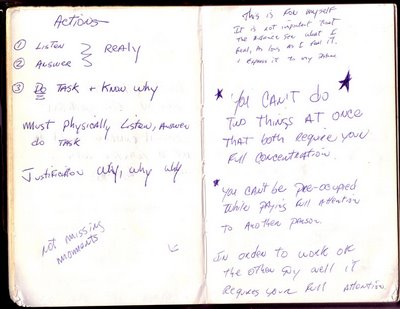 Actions
① Listen
② Answer
} Realy
③ Do Task + Know why
Must Physically Listen, Answer
do Task
Justification why, why why
not missing
moments
This is for myself
It is not important that
the audience see what I
feel, as long as I feel it.
I expose it to my
* You CAN'T do
Two things at once
That both require your
Full concentration.
* You can't be pre-occupied
While paying full attention
to Another person.
In order to work off
the other guy well it
Requires your full Attention